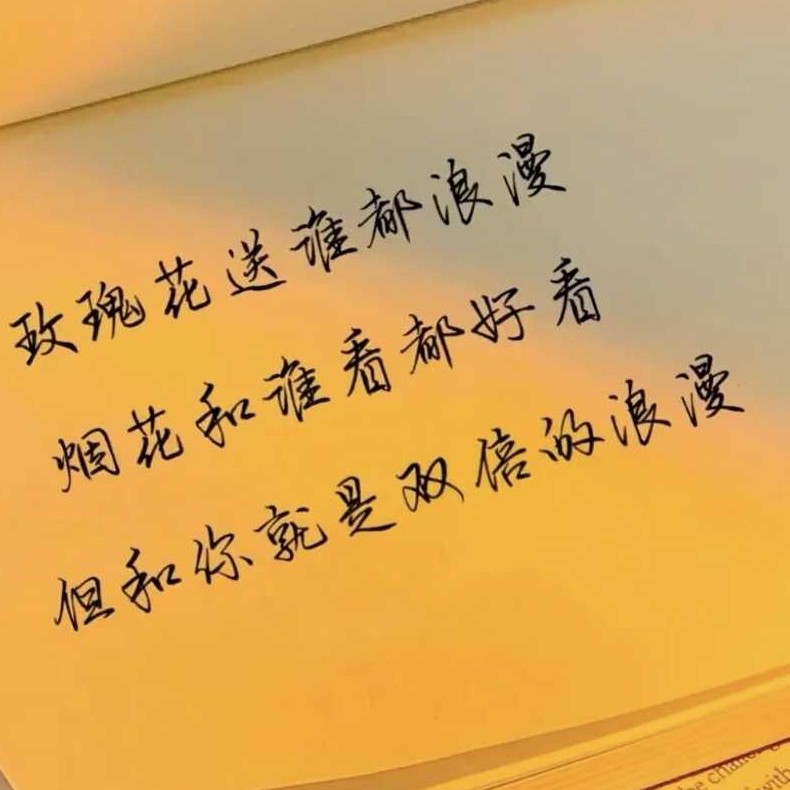 玫瑰花送谁都浪漫
烟花和谁看都好看
但和你就是双倍的浪漫
with